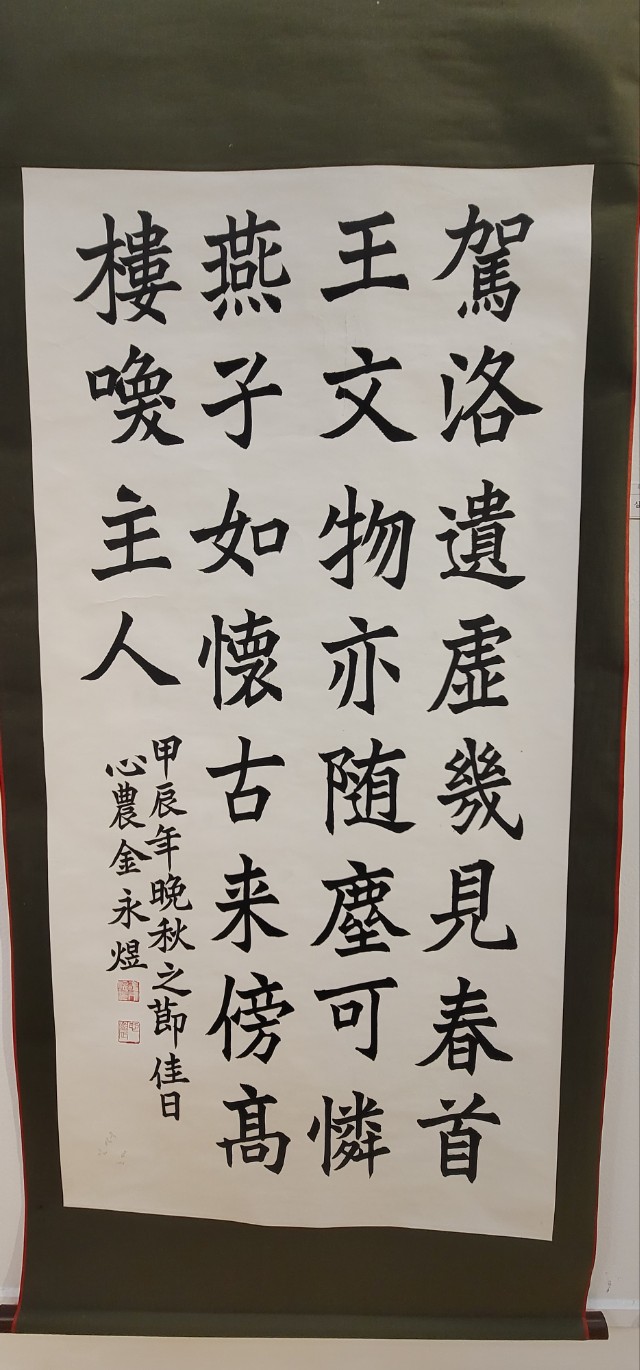 駕洛遺虛幾見春首
王文物亦随塵可憐
燕子如懐古来傍高
樓喚主人
甲辰年晩秋之節佳日
心農金永煜